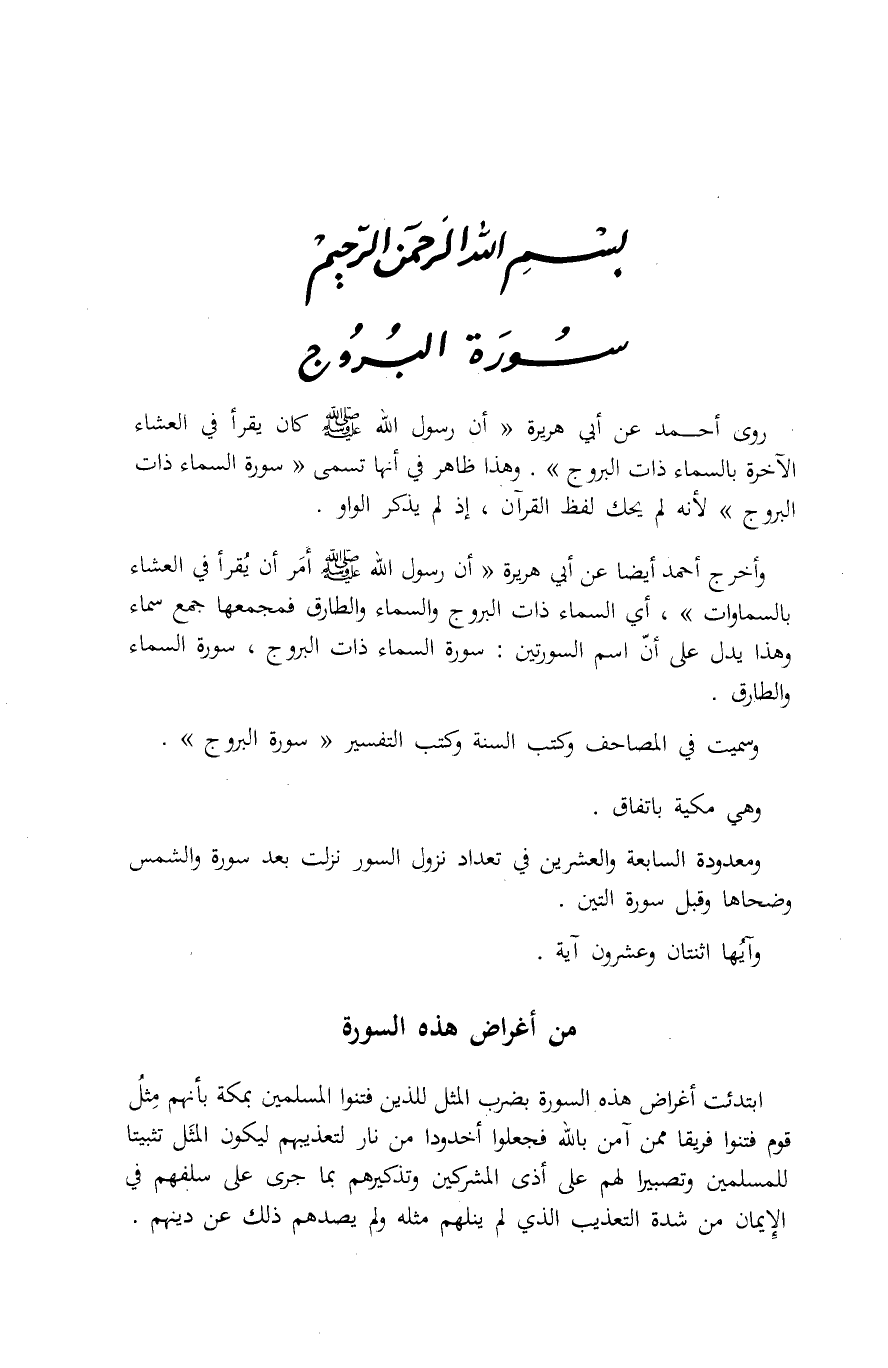 بسْمِ الله الرَّحمَن الرَّحيمْ
سُورَة البُرُوج
روى أحــمد عن أبي هريرة « أن رسول الله ﷺ كان يقرأ في العشاء
الآخرة بالسماء ذات البروج » . وهذا ظاهر في أنها تسمى « سورة السماء ذات
البروج » لأنه لم يحك لفظ القرآن ، إذ لم يذكر الواو .
وأخرج أحمد أيضا عن أبي هريرة « أن رسول الله ﷺ أَمَر أن يُقرأ في العشاء
بالسماوات » ، أي السماء ذات البروج والسماء والطارق فمجمعها جمع سماء
وهذا يدل على أنّ اسم السورتين : سورة السماء ذات البروج ، سورة السماء
والطارق .
وسميت في المصاحف وكتب السنة وكتب التفسير « سورة البروج » .
وهي مكية باتفاق .
ومعدودة السابعة والعشرين في تعداد نزول السور نزلت بعد سورة والشمس
وضحاها وقبل سورة التين .
وآيُها اثنتان وعشرون آية .
من أغراض هذه السورة
ابتدئت أغراض هذه السورة بضرب المثل للذين فتنوا المسلمين بمكة بأنهم مِثلُ
قوم فتنوا فريقا ممن آمن بالله فجعلوا أخدودا من نار لتعذيبهم ليكون المثَل تثبيتا
للمسلمين وتصبيرا لهم على أذى المشركين وتذكيرهم بما جرى على سلفهم في
الإِيمان من شدة التعذيب الذي لم ينلهم مثله ولم يصدهم ذلك عن دينهم .